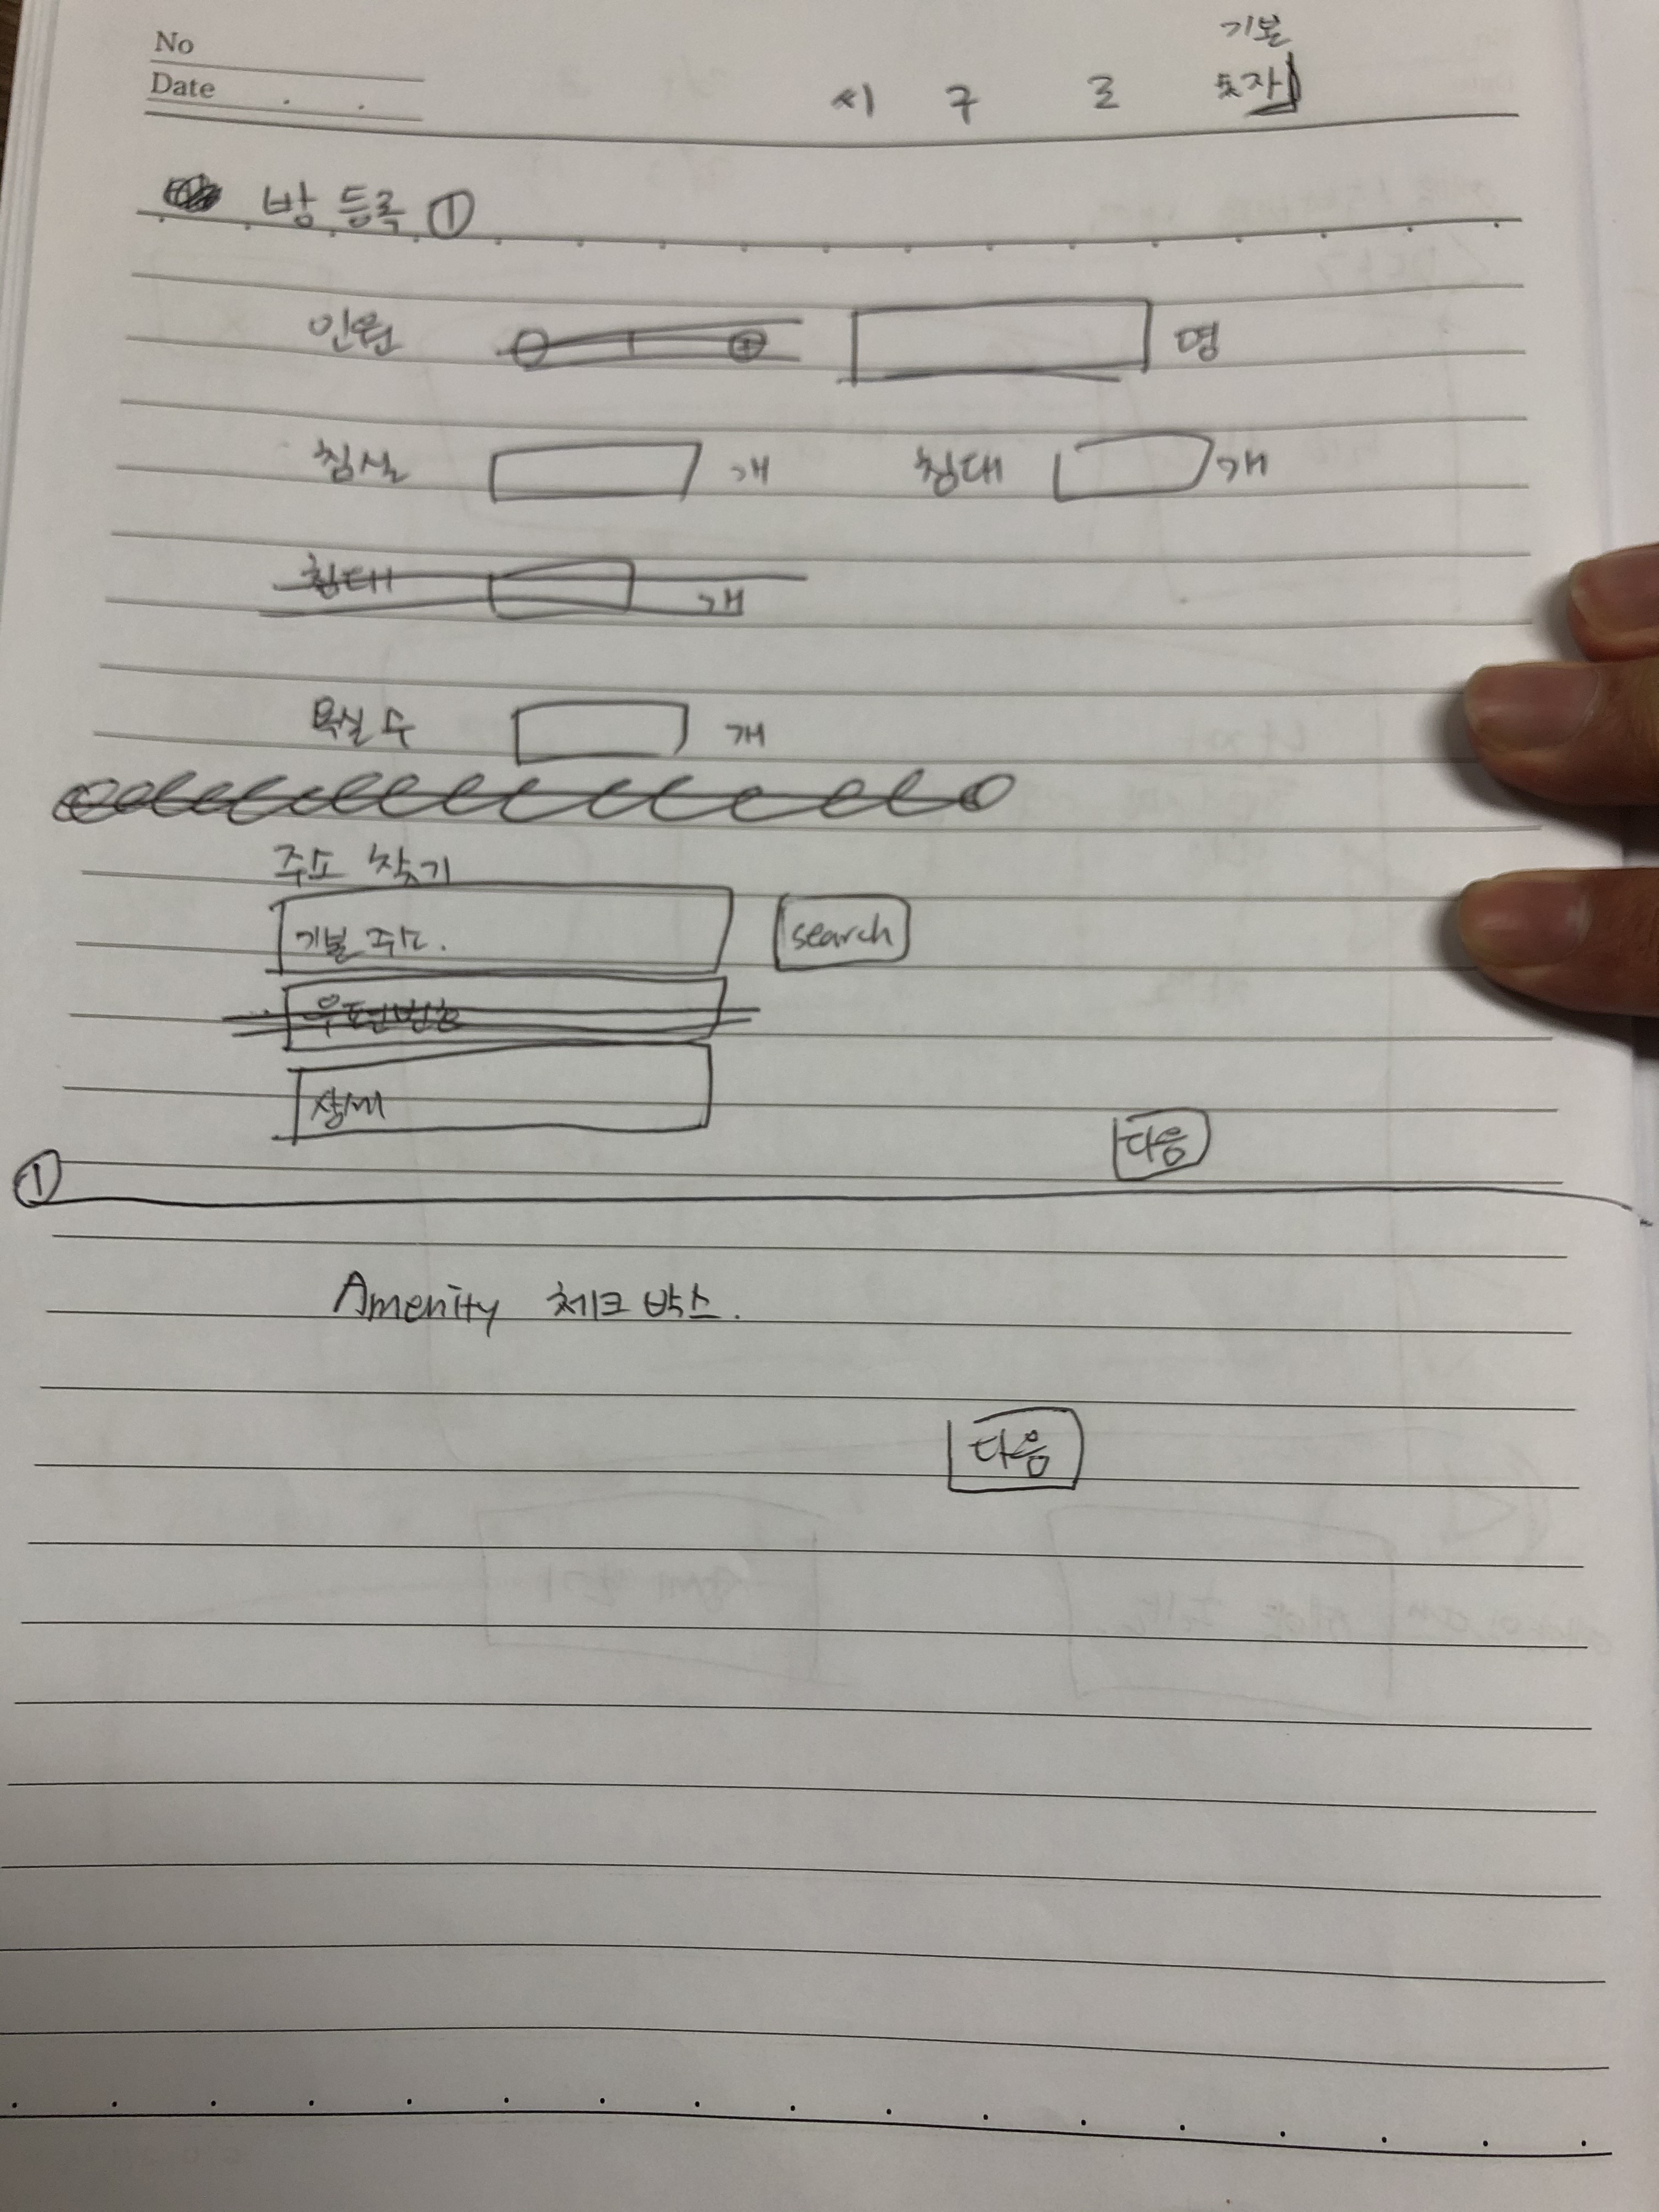 No
Date
기본
시 구 로
방 등록 ①
인원 명
침실 개 침대 개
침대 개
욕실 수 개
주소 찾기
기본 주소. search
우편번호
상세
다음
①
Amenity 체크 박스.
다음